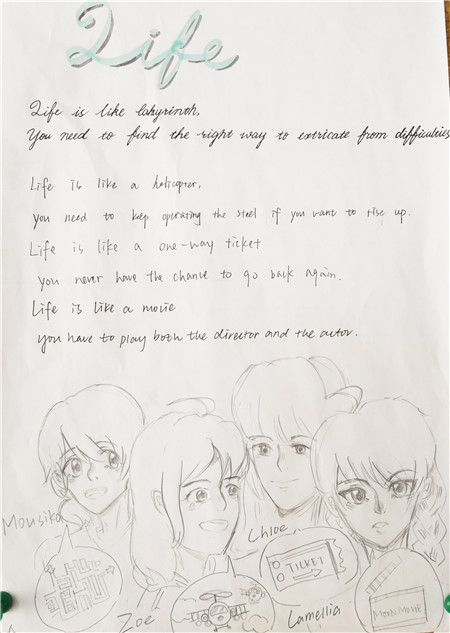 Life
Life is like labyrinth,
You need to find the right way to extricate from difficulties
Life is like a helicopter,
you need to keep operating the steel if you want to rise up.
Life is like a one-way ticket
you never have the chance to go back again.
Life is like a movie
you have to play both the director and the actor.
Mousika
Chloe
TICKET
Zoe
Camellia
MOON MOVIE